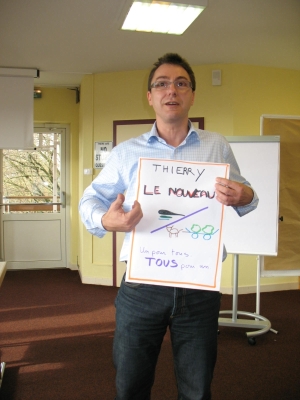 THIERRY
LE NOUVEAU
Un pour tous
TOUS pour un